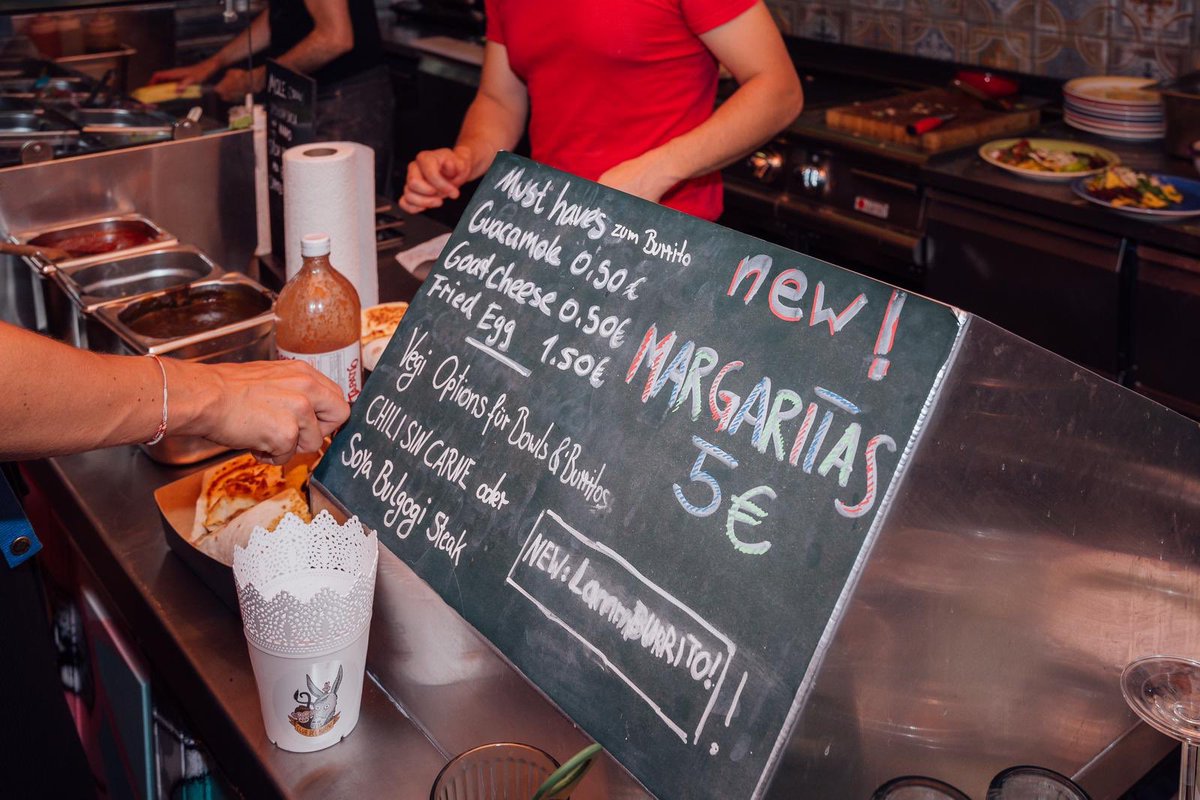 Must haves zum Burrito
Guacamole 0,50€
Goat Cheese 0.50€
Fried Egg 1.50€
Vegi Options für Bowls & Burritos
CHILI SIN CARNE oder
Soya Bulgogi Steak
new!
MARGARITAS
5€
NEW: LammBURRITO!
!